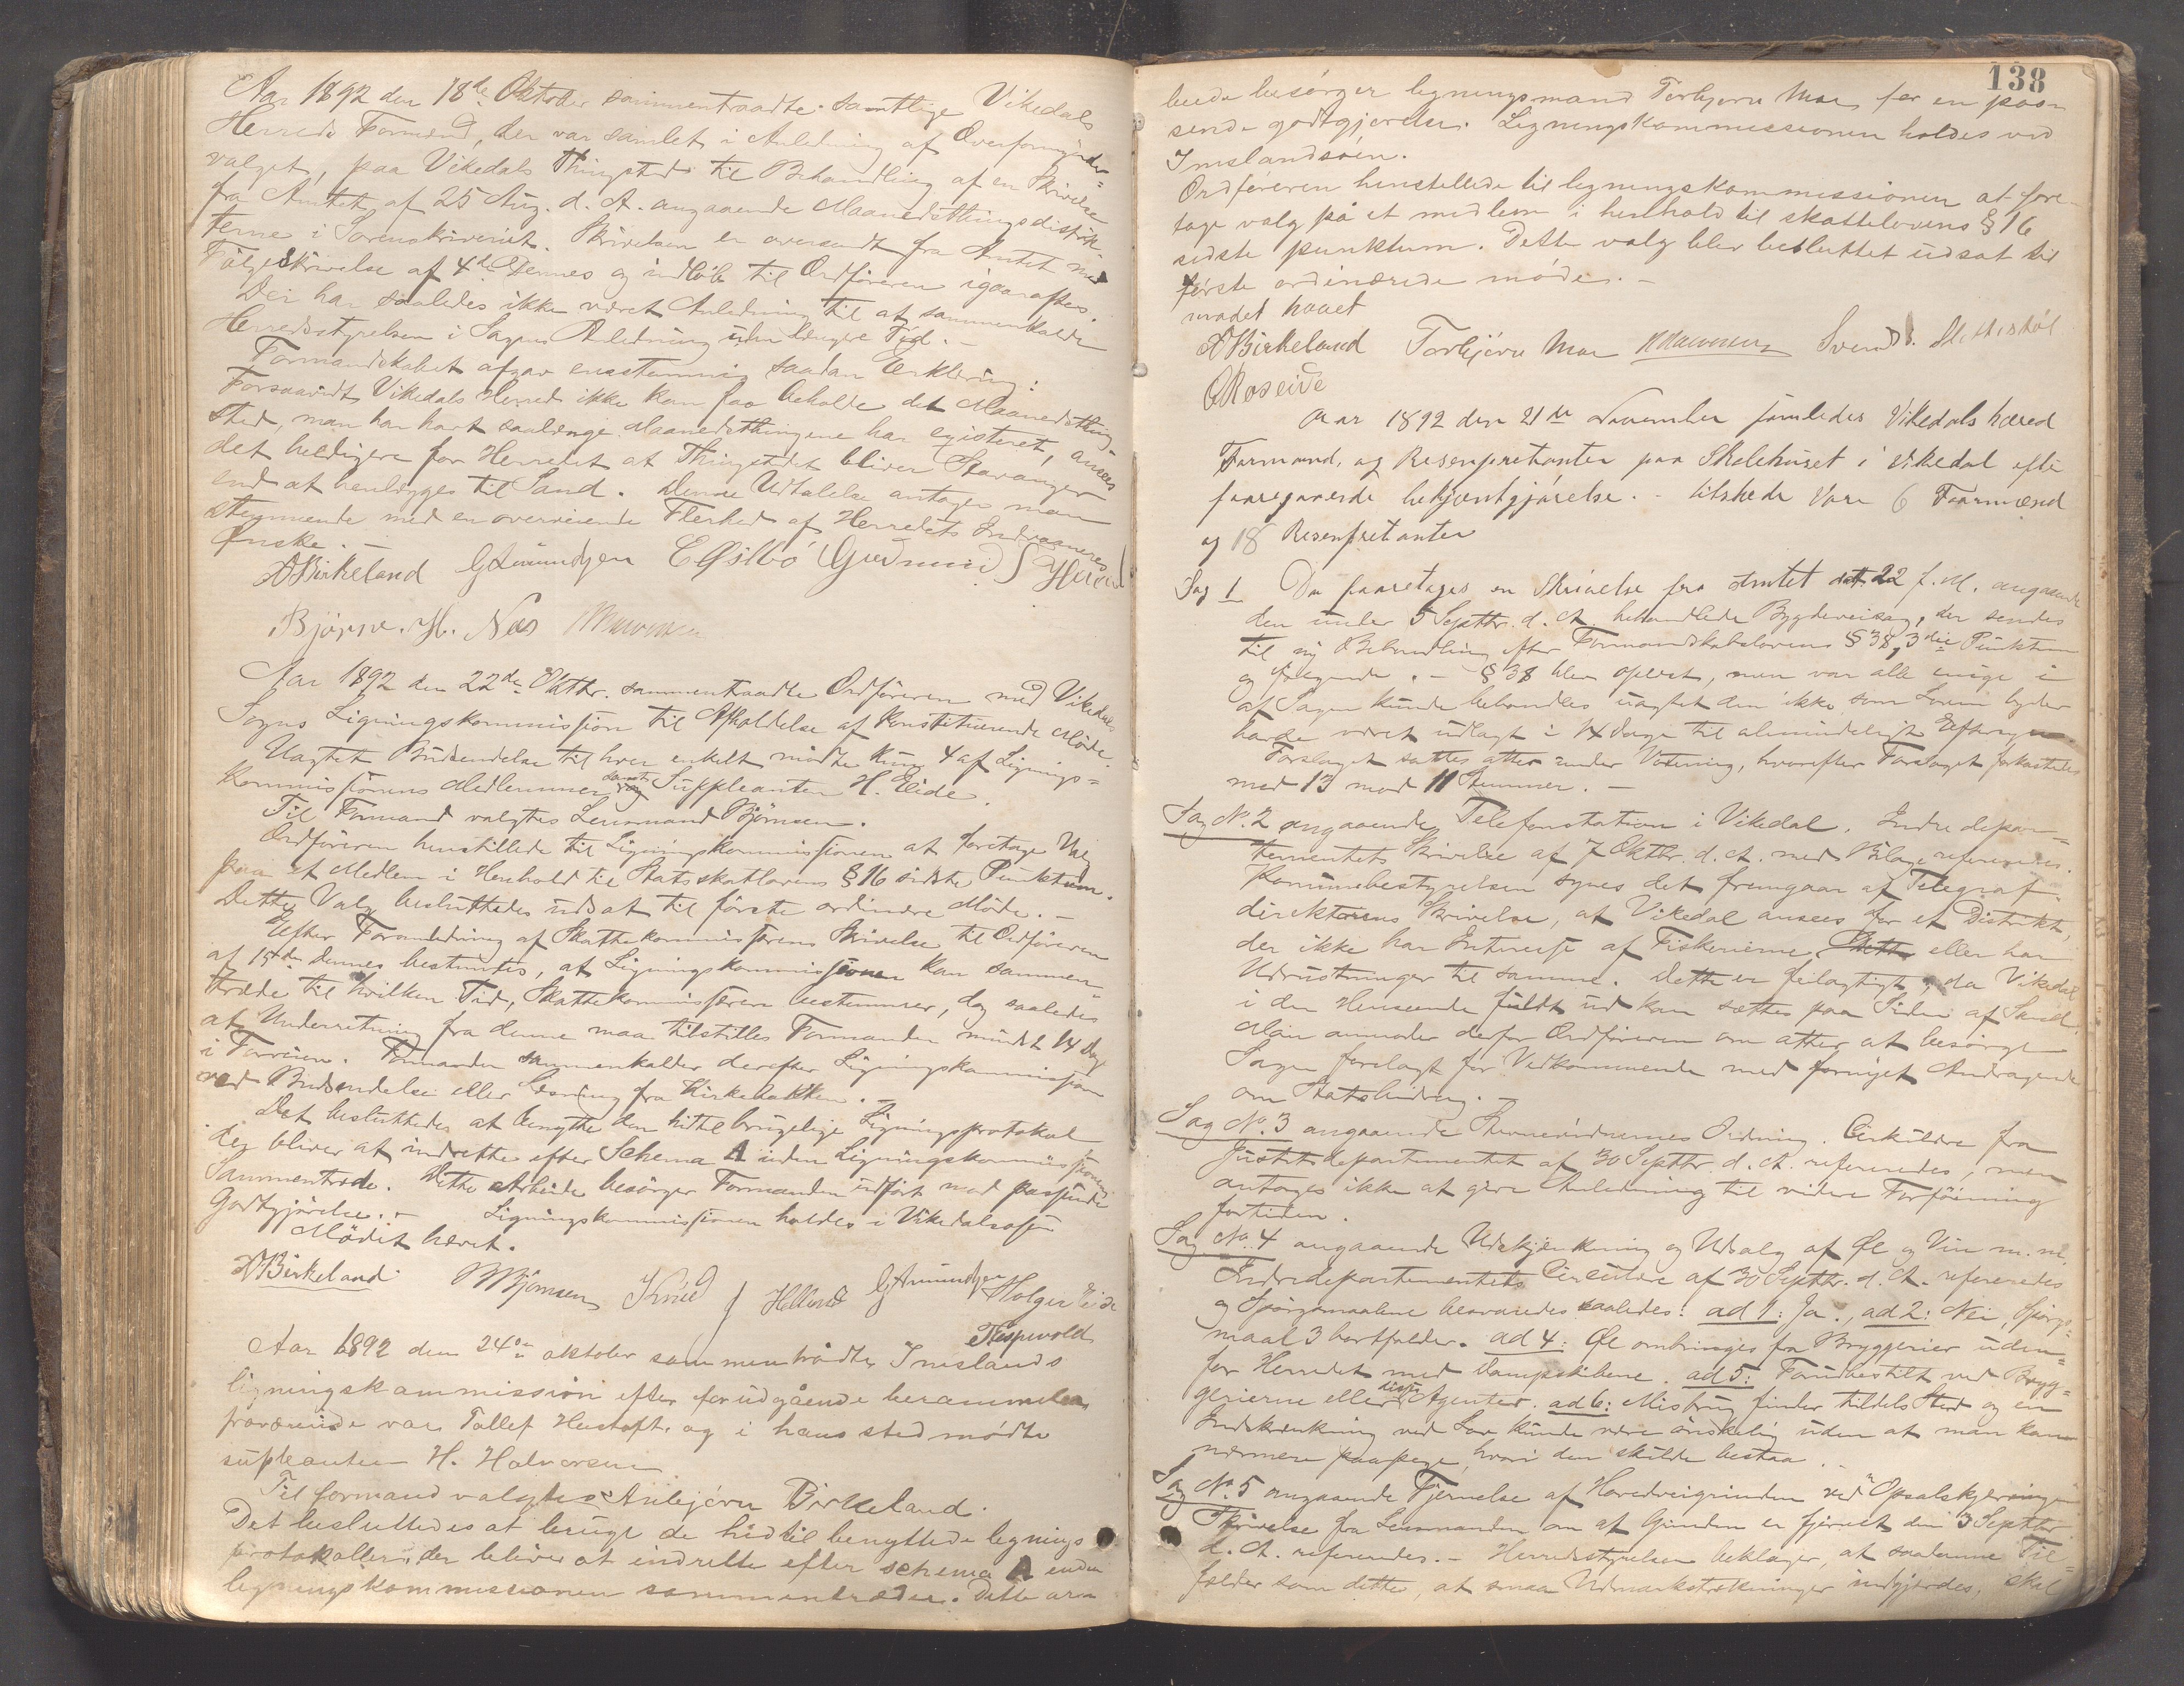 Aar 1892 den 18de Oktober sammentraadte samtlige Vikedals
Herreds Formænd, der var samlet i Anledning af Overformynder=
valget, paa Vikedals Thingsted til Behandling af en Skrivelse
fra Amtet af 25 Aug. d. A. angaaende Maanedsthingsdistrik=
terne i Sorenskriveriet. Skrivelsen er oversendt fra Amtet med
Følgeskrivelse af 4de Dennes og indløb til Ordføreren igaaraftes.
Der har saaledes ikke været Anledning til at sammenkalde
Herredsstyrelsen i Sagens Anledning uden længere Tid. –
Formandskabet afgav enstemmig saadan Erklæring:
Forsaavidt Vikedals Herred ikke kan faa beholde det Maanedsthing=
sted, man har havt saalænge Maanedsthingene har existeret, ansees
det heldigere for Herredet at Thingstedet bliver Stavanger
end at henlægges til Sand. Denne Udtalelse antages man
stemmende med en overveiende Flerhed af Herredets Indvaaneres
Ønske. –
A Birkeland G Amundsen E Ølsbø Gudmund J
Bjørne. H. Næs
Aar 1892 den 22de Oktbr. sammentraadte Ordføreren med Vikedals
Sogns Ligningskommission til Afholdelse af konstituerende Møde.
Uagtet Budsendelse til hver enkelt mødte kun 4 af Lignings=
kommissionens Medlemmer samt Suppleanten H. Eide.
Til Formand valgtes Lensmand Bjørnsen.
Ordføreren henstillede til Ligningskommissionen at foretage Valg
paa et Medlem i Henhold til Statsskatlovens § 16 sidste Punktum.
Dette Valg besluttedes udsat til første ordinære Møde. –
Efter Foranledning af Skattekommissærens Skrivelse til Ordføreren
af 15de dennes bestemtes, at Ligningskommissionen kan sammen=
træde til hvilken Tid, Skattekommissæren bestemmer, dog saaledes
at Underretning fra denne maa tilstilles Formanden mindst 14 Dag
i Forveien. Formanden sammenkalder derefter Ligningskommission
ved Budsendelse eller Læsning fra Kirkebakken. –
Det besluttedes at benytte den hidtil brugelige Ligningsprotokol
der bliver at indrette efter Schema A inden Ligningskommissionens
Sammentræde. Dette Arbeide besørger Formanden udført mod passende
Godtgjørelse. – Ligningskommissionen holdes i Vikedalsosen
Mødet hævet.
A Birkeland M Bjørnsen Knud J Helland G Amundsen Holger Eide
Aar 1892 den 24de oktober sammentrådte Imslands
ligningskommission efter forudgående berammelse
fraværende var Tollef Hustoft og i hans sted mødte
supleanten H. Halvorsen
Til formand valgtes Anbjørn Birkeland.
Det besluttedes at bruge de hidtil benyttede lignings
protokoller, der bliver at indrette efter schema A inden
ligningskommissionen sammentræder. Dette ar=
138
beide besørger ligningsmand Torbjørn Moe for en pas=
sende godtgjørelse. Ligningskommissionen holdes ved
Imslandsøen.
Ordføreren henstillede til ligningskommissionen at fore=
tage valg på et medlem i henhold til skattelovens § 16
sidste punktum. Dette valg blev besluttet udsat til
første ordinærede møde. –
mødet hævet
A Birkeland Torbjørn Moe Svend S.
O Roseide
Aar 1892 den 21de November samledes Vikedals hæred
Formænd, og Resenpretanter paa Skolehuset i Vikedal efter
faaregaaende bekjæntgjørelse. – tilstæde Vare 6 Faarmænd
og 18 Resenpretanter
Sag 1 Da faaretages en Skrivelse fra Amtet dat 22 f. M. angaaende
den under 5 Septbr. d. A. behandlede Bygdeveisag, der sendes
til ny Behandling efter Formandskabslovens § 38, 3die Punktum
og følgende. – § 38 blev oplæst, men var alle enige i
at Sagen kunde behandles uagtet den ikke, som Loven byder
havde været udlagt i 14 Dage til almindeligt Eftersyn.
Forslaget sattes atter under Votering, hvorefter Forslaget forkastedes
med 13 mod 11 Stemmer. –
Sag No. 2 angaaende Telefonstation i Vikedal. Indre depar=
tementets Skrivelse af 7 Oktbr. d. A. med Bilage refereres.
Kommunebestyrelsen synes det fremgaar af Telegraf
direktørens Skrivelse, at Vikedal ansees for et Distrikt,
der ikke har Interesse af Fiskerierne, eller har
Udrustninger til samme. Dette er feilagtigt, da Vikedal
i den Henseende fuldt ud kan sættes paa Siden af Sand.
Man anmoder derfor Ordføreren om atter at besørge
Sagen forelagt for Vedkommende med fornyet Andragende
om Statsbidrag. –
Sag No. 3 angaaende Stevnevidnernes Ordning. Cirkulære fra
Justitsdepartementet af 30 Septbr. d. A. refereredes, men
antages ikke at give Anledning til videre Forføining
fortiden.
Sag No. 4 angaaende Udskjænkning og Udsalg af Øl og Vin m. m.
Indredepartementets Circulære af 30 Septbr. d. A. refereredes
og Spørgsmaalene besvaredes saaledes: ad 1: Ja., ad 2: Nei, Spørgs=
maal 3 bortfalder. ad 4: Øl ombringes fra Bryggerier uden=
for Herredet med Dampskibene. ad 5: Forudbestilt ved Bryg=
gerierne eller disses Agenter. ad 6: Misbrug finder tildels Sted og en
Indskrænkning ved Lov kunde være ønskelig uden at man kan
nærmere paapege, hvori den skulde bestaa. –
Sag No. 5 angaaende Fjernelse af Hovedveigrinden ved "Opsalskjerringen"
Skrivelse fra Lensmanden om at Grinden er fjernet den 3 Septbr
d. A. refereredes. – Herredsstyrelsen beklager, at saadanne Til=
fælder som dette, at smaa Udmarkstrækninger indgjerdes, skal